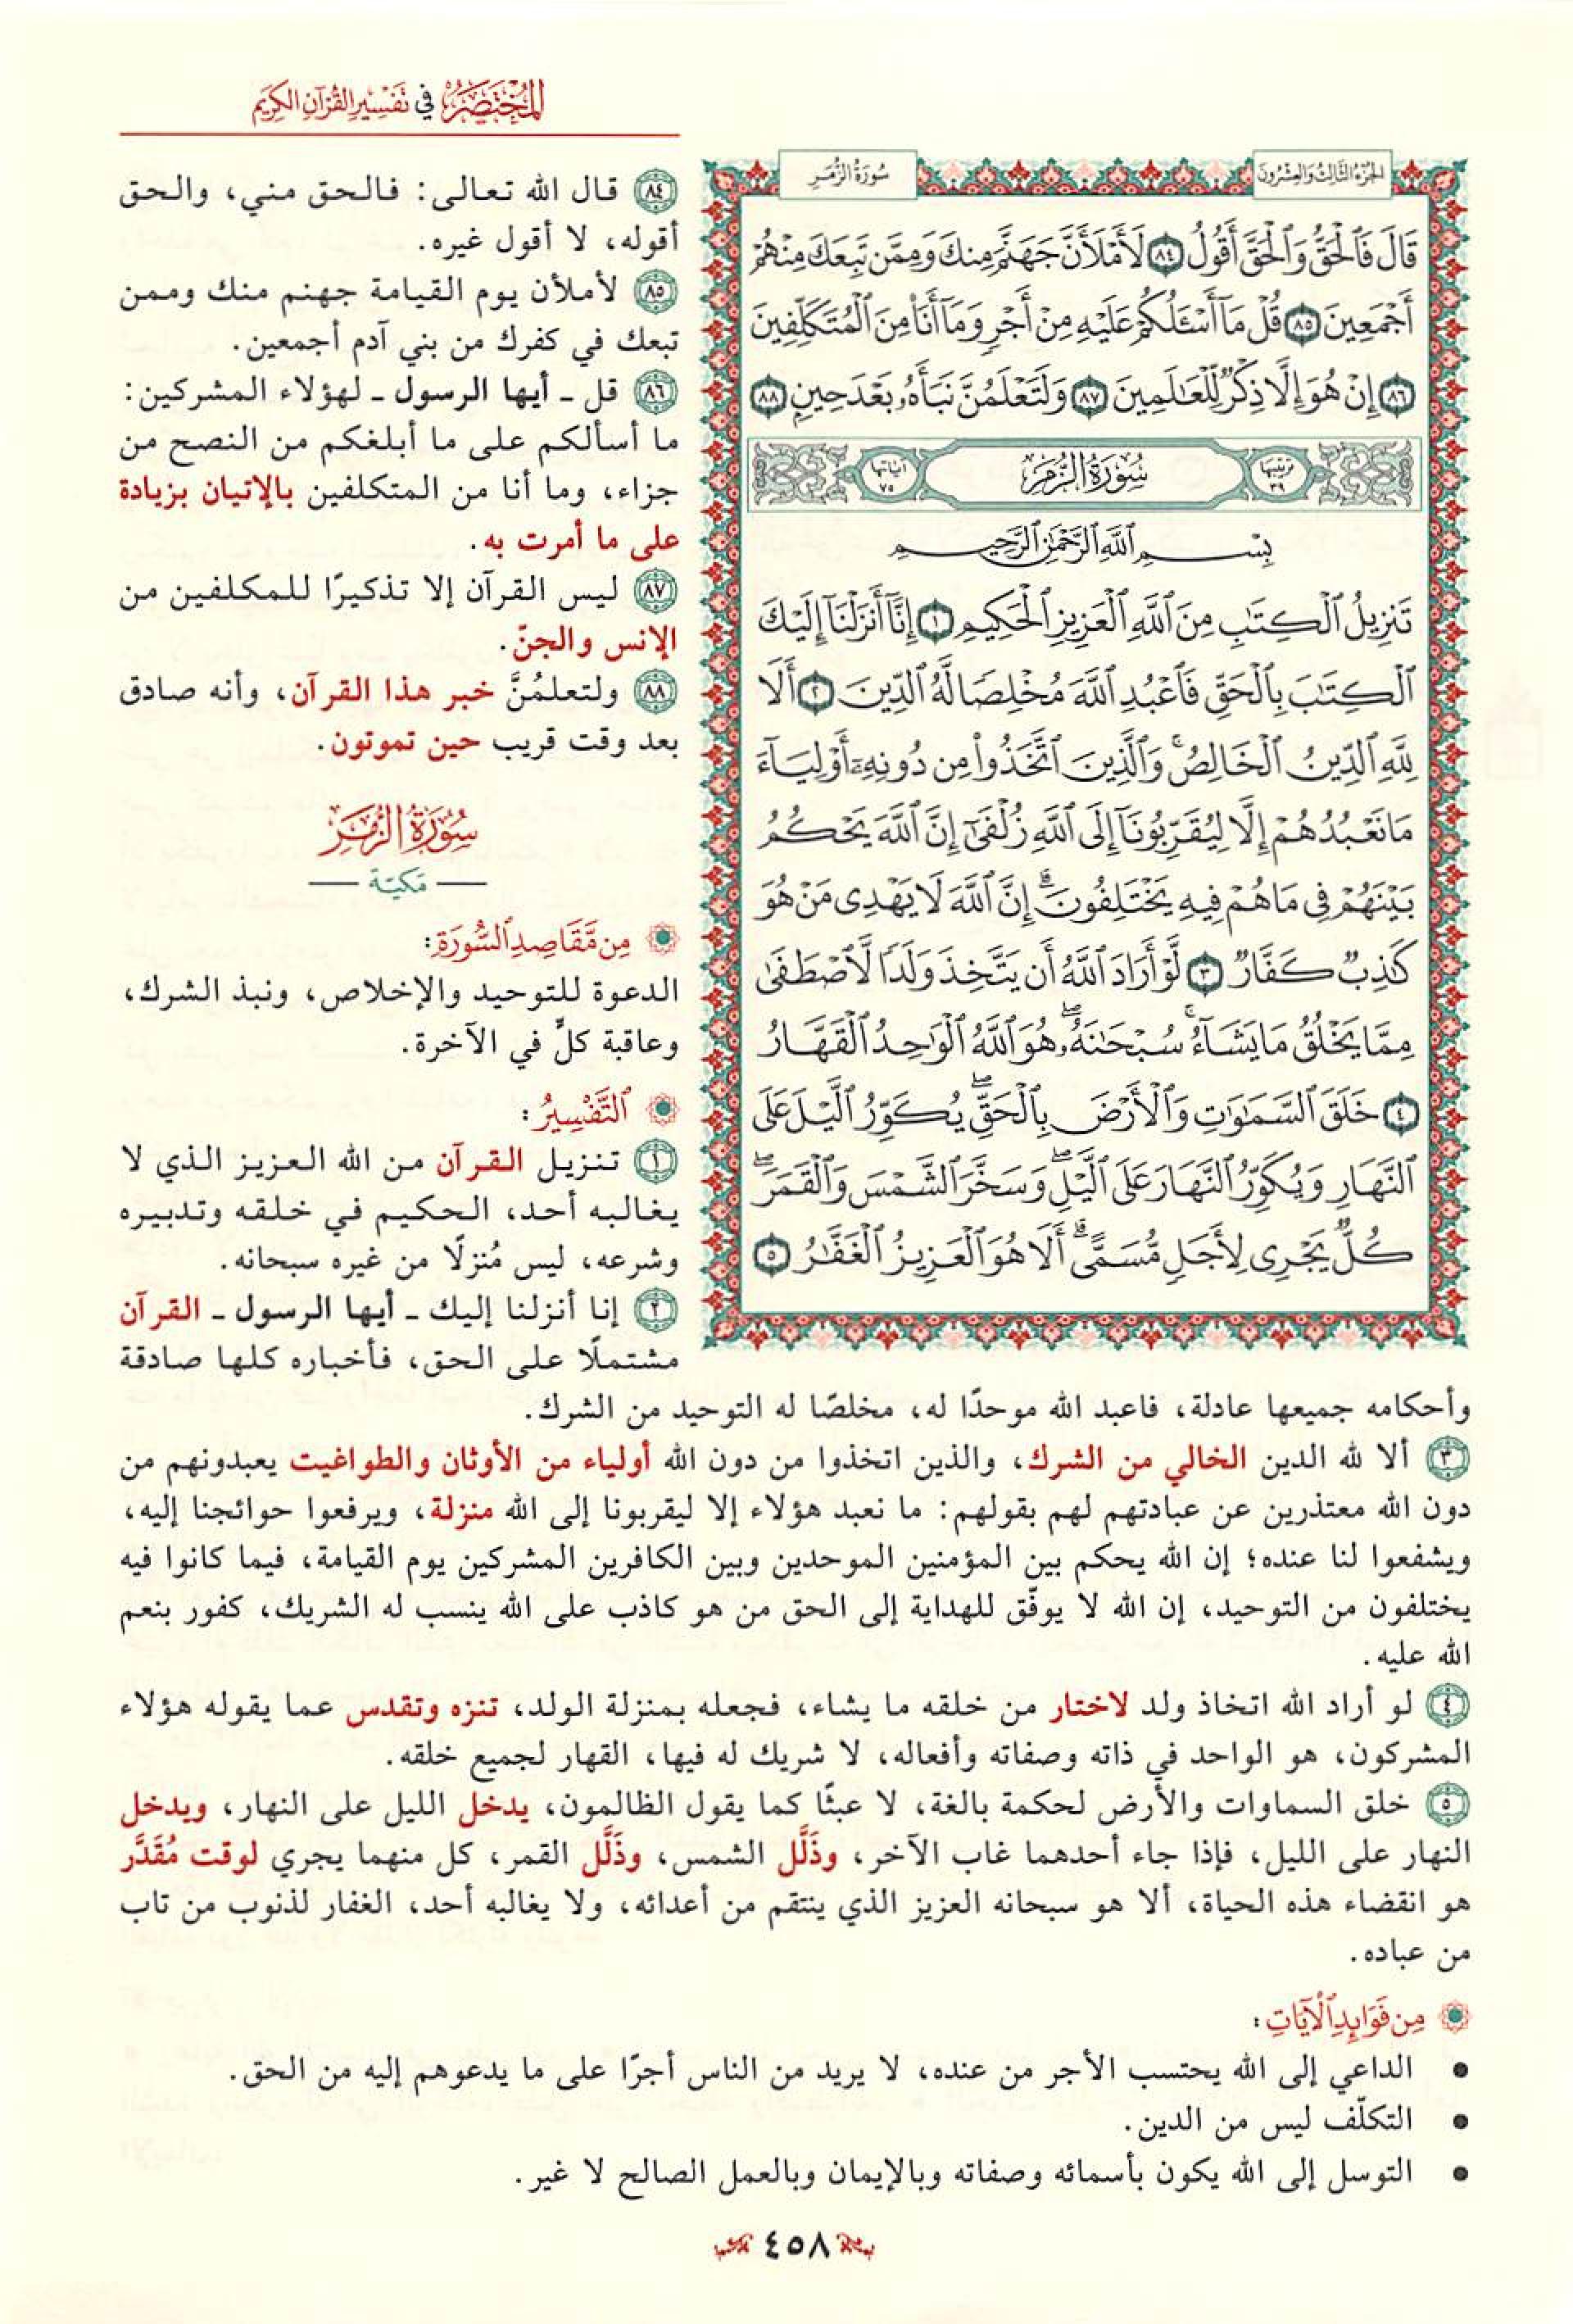 المختصر في تفسير القرآن الكريم
الجزء الثالث والعشرون
سورة الزمر
قَالَ فَٱلْحَقُّ وَٱلْحَقَّ أَقُولُ ٨٤ لَأَمْلَأَنَّ جَهَنَّمَ مِنكَ وَمِمَّن تَبِعَكَ مِنْهُمْ
أَجْمَعِينَ ٨٥ قُلْ مَآ أَسْـَٔلُكُمْ عَلَيْهِ مِنْ أَجْرٍ وَمَآ أَنَا۠ مِنَ ٱلْمُتَكَلِّفِينَ
٨٦ إِنْ هُوَ إِلَّا ذِكْرٌ لِّلْعَـٰلَمِينَ ٨٧ وَلَتَعْلَمُنَّ نَبَأَهُۥ بَعْدَ حِينٍۭ ٨٨
ترتيبها ٣٩ سورة الزمر آياتها ٧٥
بِسْمِ ٱللَّهِ ٱلرَّحْمَـٰنِ ٱلرَّحِيمِ
تَنزِيلُ ٱلْكِتَـٰبِ مِنَ ٱللَّهِ ٱلْعَزِيزِ ٱلْحَكِيمِ ١ إِنَّآ أَنزَلْنَآ إِلَيْكَ
ٱلْكِتَـٰبَ بِٱلْحَقِّ فَٱعْبُدِ ٱللَّهَ مُخْلِصًا لَّهُ ٱلدِّينَ ٢ أَلَا
لِلَّهِ ٱلدِّينُ ٱلْخَالِصُ ۚ وَٱلَّذِينَ ٱتَّخَذُوا۟ مِن دُونِهِۦٓ أَوْلِيَآءَ
مَا نَعْبُدُهُمْ إِلَّا لِيُقَرِّبُونَآ إِلَى ٱللَّهِ زُلْفَىٰٓ إِنَّ ٱللَّهَ يَحْكُمُ
بَيْنَهُمْ فِى مَا هُمْ فِيهِ يَخْتَلِفُونَ ۗ إِنَّ ٱللَّهَ لَا يَهْدِى مَنْ هُوَ
كَـٰذِبٌ كَفَّارٌ ٣ لَّوْ أَرَادَ ٱللَّهُ أَن يَتَّخِذَ وَلَدًا لَّٱصْطَفَىٰ
مِمَّا يَخْلُقُ مَا يَشَآءُ ۚ سُبْحَـٰنَهُۥ ۖ هُوَ ٱللَّهُ ٱلْوَٰحِدُ ٱلْقَهَّارُ
٤ خَلَقَ ٱلسَّمَـٰوَٰتِ وَٱلْأَرْضَ بِٱلْحَقِّ ۖ يُكَوِّرُ ٱلَّيْلَ عَلَى
ٱلنَّهَارِ وَيُكَوِّرُ ٱلنَّهَارَ عَلَى ٱلَّيْلِ ۖ وَسَخَّرَ ٱلشَّمْسَ وَٱلْقَمَرَ ۖ
كُلٌّ يَجْرِى لِأَجَلٍ مُّسَمًّى ۗ أَلَا هُوَ ٱلْعَزِيزُ ٱلْغَفَّـٰرُ ٥
٨٤ قال الله تعالى: فالحق مني، والحق
أقوله، لا أقول غيره.
٨٥ لأملأن يوم القيامة جهنم منك وممن
تبعك في كفرك من بني آدم أجمعين.
٨٦ قل ـ أيها الرسول ـ لهؤلاء المشركين:
ما أسألكم على ما أبلغكم من النصح من
جزاء، وما أنا من المتكلفين بالإتيان بزيادة
على ما أمرت به.
٨٧ ليس القرآن إلا تذكيرًا للمكلفين من
الإنس والجنّ.
٨٨ ولتعلمُنَّ خبر هذا القرآن، وأنه صادق
بعد وقت قريب حين تموتون.
سورة الزمر
— مكية —
من مقاصد السورة:
الدعوة للتوحيد والإخلاص، ونبذ الشرك،
وعاقبة كلٍّ في الآخرة.
التفسير:
١ تنزيل القرآن من الله العزيز الذي لا
يغالبه أحد، الحكيم في خلقه وتدبيره
وشرعه، ليس مُنزلًا من غيره سبحانه.
٢ إنا أنزلنا إليك ـ أيها الرسول ـ القرآن
مشتملًا على الحق، فأخباره كلها صادقة
وأحكامه جميعها عادلة، فاعبد الله موحدًا له، مخلصًا له التوحيد من الشرك.
٣ ألا لله الدين الخالي من الشرك، والذين اتخذوا من دون الله أولياء من الأوثان والطواغيت يعبدونهم من
دون الله معتذرين عن عبادتهم لهم بقولهم: ما نعبد هؤلاء إلا ليقربونا إلى الله منزلة، ويرفعوا حوائجنا إليه،
ويشفعوا لنا عنده؛ إن الله يحكم بين المؤمنين الموحدين وبين الكافرين المشركين يوم القيامة، فيما كانوا فيه
يختلفون من التوحيد، إن الله لا يوفّق للهداية إلى الحق من هو كاذب على الله ينسب له الشريك، كفور بنعم
الله عليه.
٤ لو أراد الله اتخاذ ولد لاختار من خلقه ما يشاء، فجعله بمنزلة الولد، تنزه وتقدس عما يقوله هؤلاء
المشركون، هو الواحد في ذاته وصفاته وأفعاله، لا شريك له فيها، القهار لجميع خلقه.
٥ خلق السماوات والأرض لحكمة بالغة، لا عبثًا كما يقول الظالمون، يدخل الليل على النهار، ويدخل
النهار على الليل، فإذا جاء أحدهما غاب الآخر، وذَلَّل الشمس، وذَلَّل القمر، كل منهما يجري لوقت مُقَدَّر
هو انقضاء هذه الحياة، ألا هو سبحانه العزيز الذي ينتقم من أعدائه، ولا يغالبه أحد، الغفار لذنوب من تاب
من عباده.
من فوائد الآيات:
• الداعي إلى الله يحتسب الأجر من عنده، لا يريد من الناس أجرًا على ما يدعوهم إليه من الحق.
• التكلّف ليس من الدين.
• التوسل إلى الله يكون بأسمائه وصفاته وبالإيمان وبالعمل الصالح لا غير.
٤٥٨